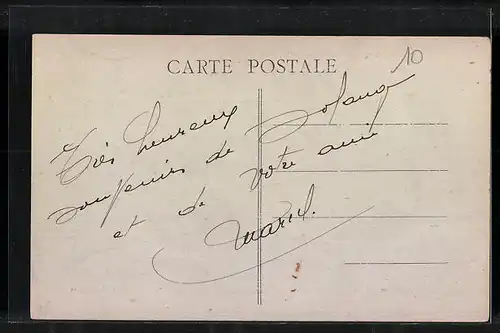 CARTE POSTALE
10
Très heureux
souvenirs de Solange
et de votre ami
Marcel.